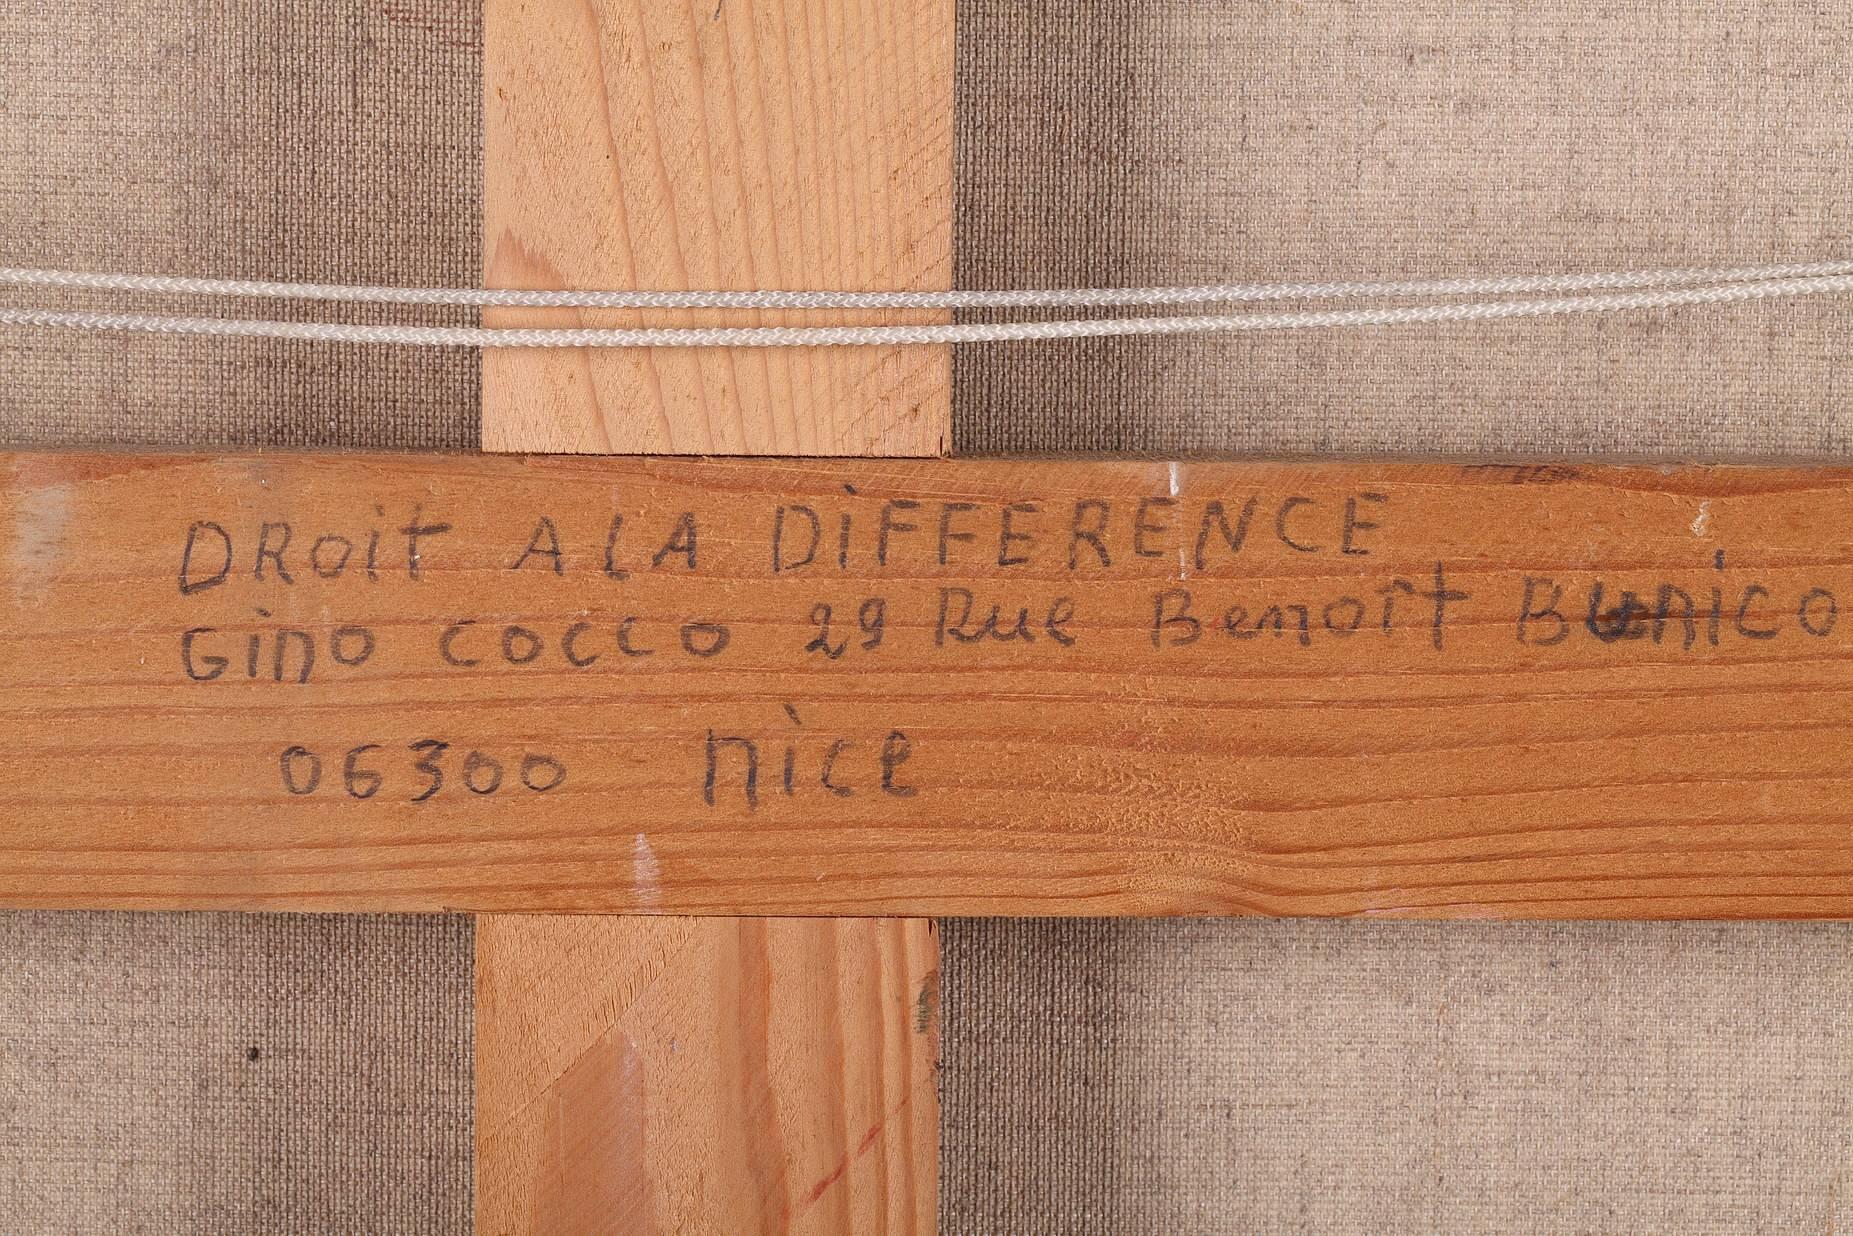 DRoit A LA DiFFERENCE
Gino cocco 29 Rue Benoît Bunico
06300 nice